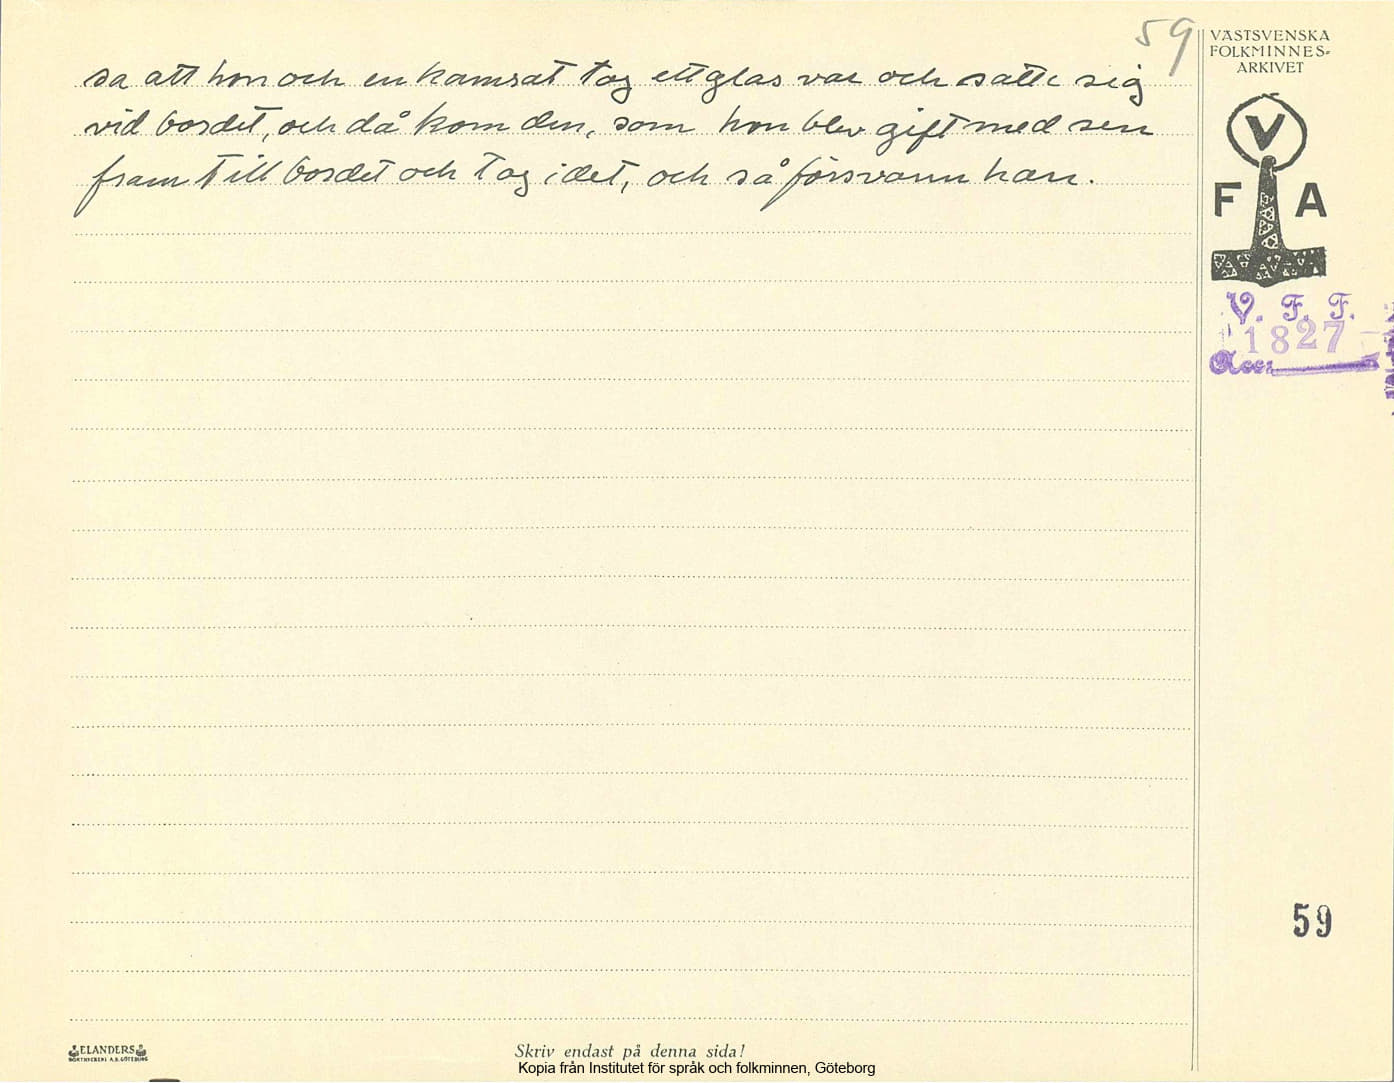 59
VÄSTSVENSKA
FOLKMINNES-
ARKIVET
sa att hon och en kamrat tog ett glas var och satte sig
vid bordet, och då kom den, som hon blev gift med sen
fram till bordet och tog i det, och så försvann han.
V
F A
V. F. F.
1827
Acc:
59
ELANDERS
BOKTRYCKERI A.B. GÖTEBORG
Skriv endast på denna sida!
Kopia från Institutet för språk och folkminnen, Göteborg